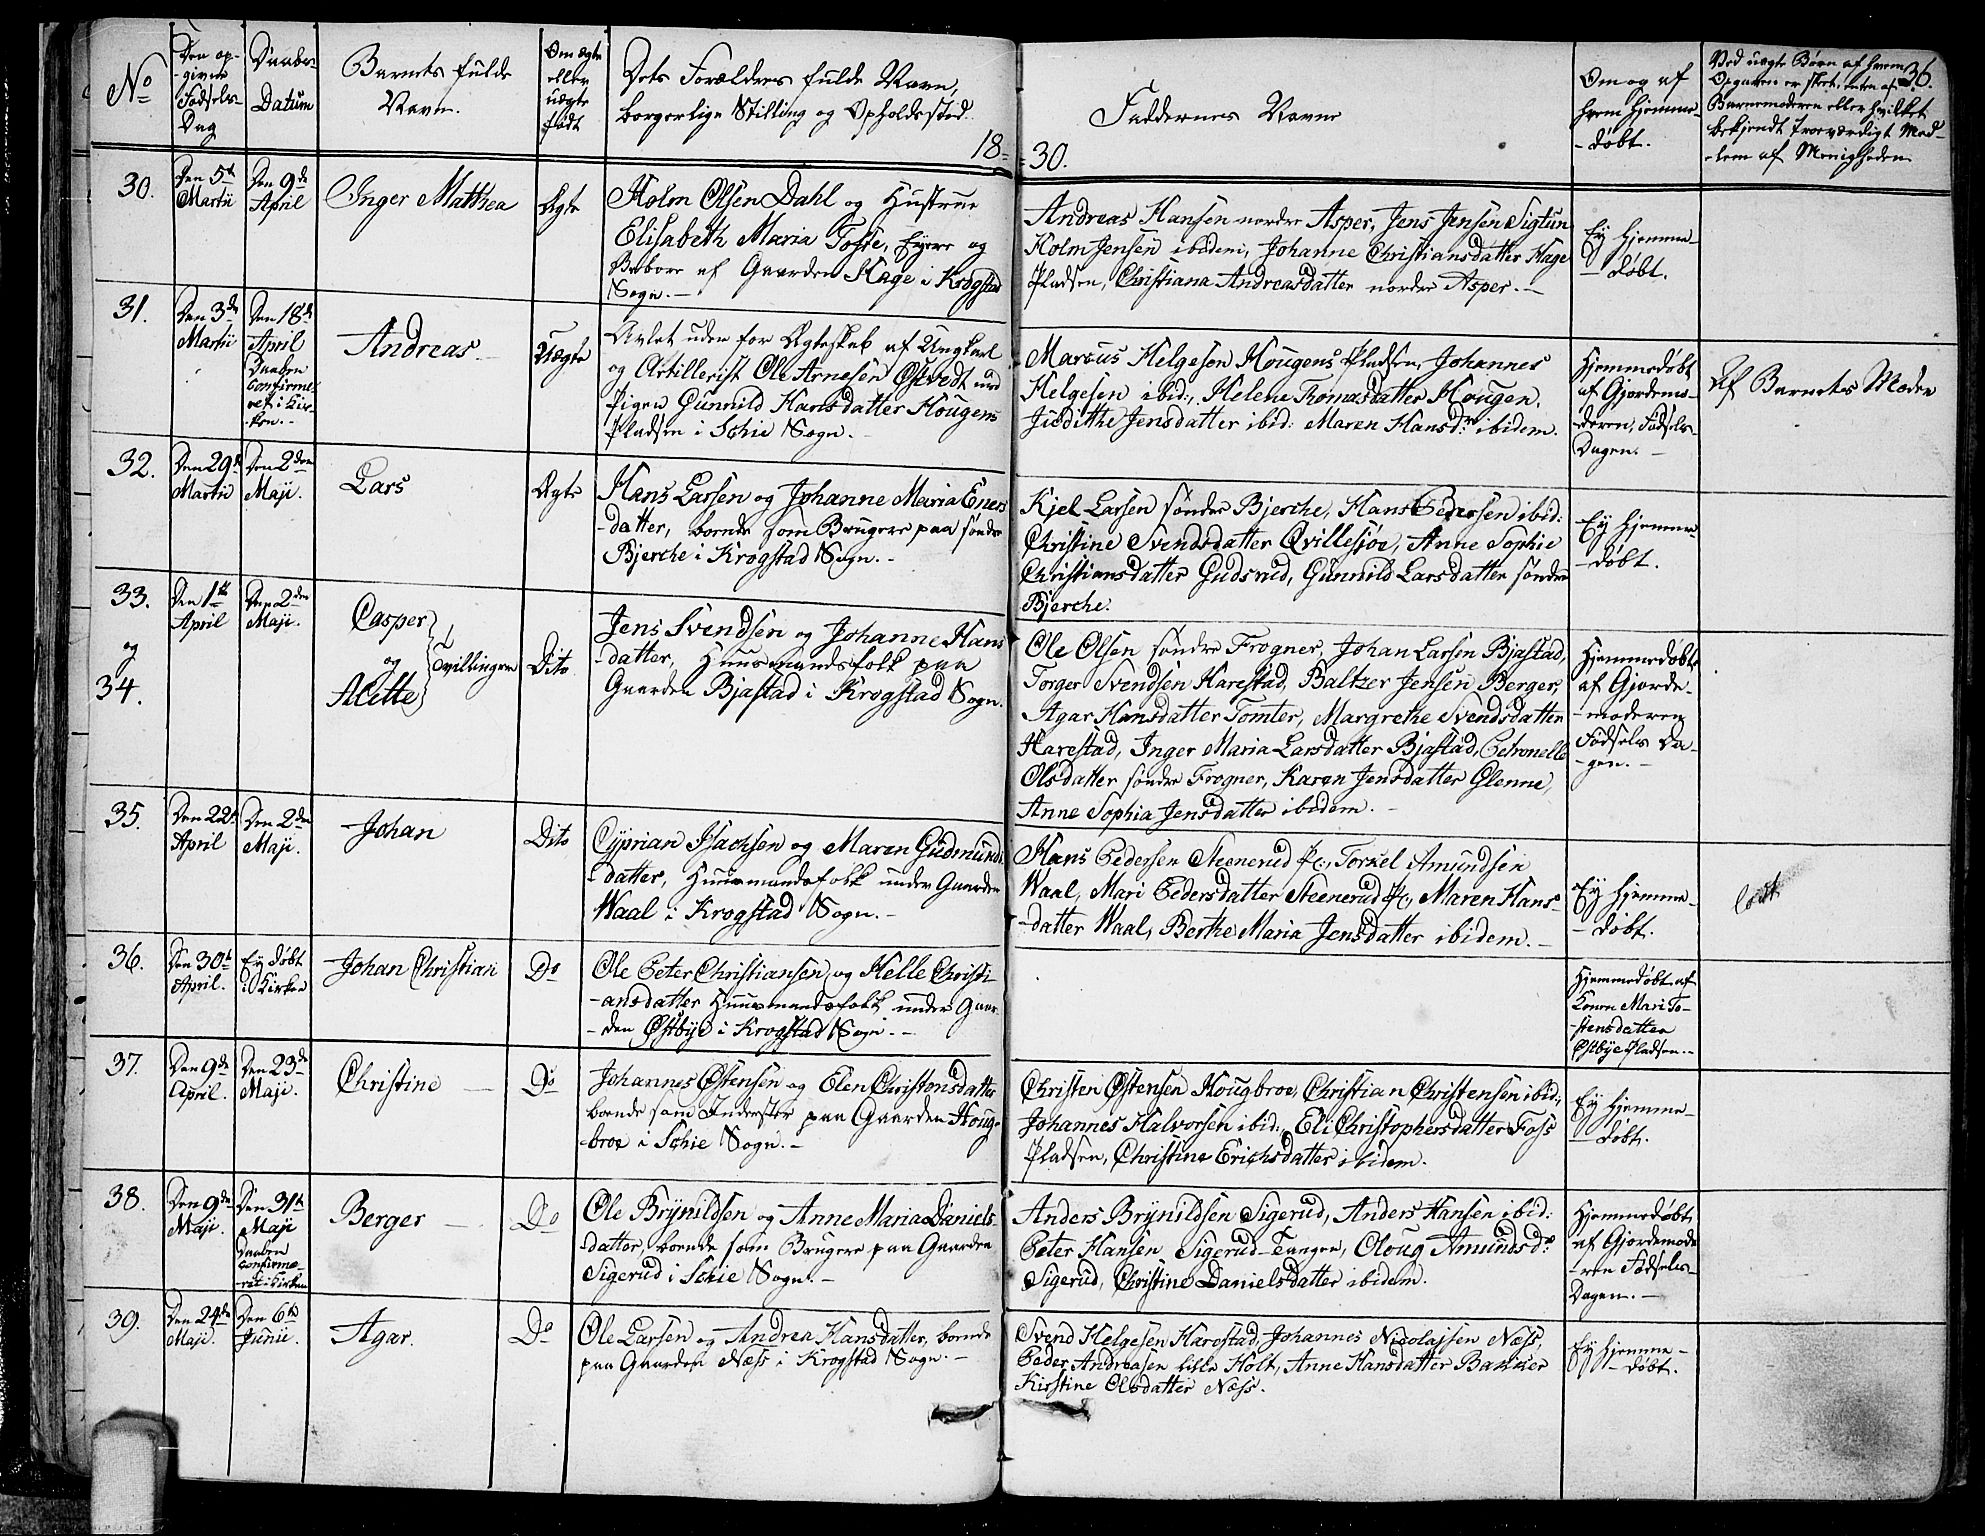 36.
No
Den op-
-givne
Fødsels-
Dag
Daabs-
Datum
Barnets fulde
Navn.
Om ægte
eller
uægte
født
Dets Forældres fulde Navn,
borgerlige Stilling og Opholdssted.
Faddernes Navne
Om og af
hvem hjemme-
-døbt.
Ved uægte Børn af hvem
Opgaven er skeet, enten af
Barnemoderen eller hvilket
bekjendt troeværdigt Med-
-lem af Menigheden
18-
-30.
30.
Den 5te
Martii
Den 9de
April
Inger Mathea
Ægte
Holm Olsen Dahl og Hustrue
Elisabeth Maria Fosse, Eyere og
Beboere af Gaarden Hage i Krogstad
Sogn.-
Andreas Hansen nordre Asper, Jens Jensen Sigtun
Holm Jensen ibidem, Johanne Christiansdatter Hage
Pladsen, Christiana Andreasdatter nordre Asper.-
Ey hjemme-
-døbt.
31.
Den 3de
Martii
Den 18de
April
Daaben
confirme-
ret i Kir-
ken.-
Andreas
Uægte
Avlet uden for Ægteskab af Ungkarl
og Artillerist Ole Arnesen Østvedt med
Pigen Gunnild Hansdatter Hougens
Pladsen i Schie Sogn.-
Marcus Helgesen Hougens Pladsen, Johannes
Helgesen ibid:, Helene Tomasdatter Hougen,
Judithe Jensdatter ibid: Maren Hansdr ibidem.
Hjemmedøbt
af Gjordemo-
deren, Fødsels-
Dagen.-
Af Barnets Moder
32.
Den 29de
Martii
Den 2den
Maji.
Lars
Ægte
Hans Larsen og Johanne Maria Eners
-datter, boende som Brugere paa søndre
Bjerche i Krogstad Sogn.-
Kjel Larsen søndre Bjerche, Hans Pedersen ibid:
Christine Svendsdatter Qvillesjøe, Anne Sophie
Christiansdatter Gudsrud, Gunnild Larsdatter søndre
Bjerche.
Ey hjemme-
-døbt.
33.
og
34.
Den 1ste
April
Den 2den
Maji.
Casper
og
Alette
Tvillinger
Dito
Jens Svendsen og Johanne Hans
-datter, Huusmandsfolk paa
Gaarden Bjastad i Krogstad Sogn.
Ole Olsen søndre Frogner, Johan Larsen Bjastad,
Torger Svendsen Harestad, Baltzer Jensen Berger,
Agar Hansdatter Tomter, Margrethe Svendsdatter
Harestad, Inger Maria Larsdatter Bjastad, Petronelle
Olsdatter søndre Frogner, Karen Jensdatter Glenne,
Anne Sophia Jensdatter ibidem.-
Hjemmedøbte
af Gjorde-
-moderen
Fødsels Da-
-gen.-
35.
Den 22de
April
Den 2den
Maji.
Johan
Dito
Cyprian Isachsen og Maren Gudmunds
-datter, Huusmandsfolk under Gaarden
Waal i Krogstad Sogn.-
Hans Pedersen Steenerud Pl:, Torkel Amundsen
Waal, Mari Pedersdatter Steenerud Pl:, Maren Hans-
-datter Waal, Berthe Maria Jensdatter ibidem.-
Ey hjemme-
-døbt.
36.
Den 30te
April.
Ey døbt
i Kirken
Johan Christian
Do
Ole Peter Christiansen og Helle Christi-
-ansdatter Huusmandsfolk under Gaar-
-den Østbye i Krogstad Sogn.-
Hjemmedøbt af
Konen Mari To-
stensdatter
Østbye Pladsen.-
37.
Den 9de
April.
Den 23de
Maji.
Christine
Do
Johannes Østensen og Elen Christensdatter
boende som Inderster paa Gaarden Houg-
broe i Schie Sogn.-
Christen Østensen Hougbroe, Christian Christensen ibid:,
Johannes Halvorsen ibid:, Eli Christophersdatter Foss
Pladsen, Christine Erichsdatter ibidem.
Ey hjemme-
-døbt.
38.
Den 9de
Maji.
Den 31te
Maji
Daaben
confirme-
-ret i Kirken
Berger
Do
Ole Brynildsen og Anne Maria Daniels-
-datter, boende som Brugere paa Gaarden
Sigerud i Schie Sogn.-
Anders Brynildsen Sigerud, Anders Hansen ibid:
Peter Hansen Sigerud-Tangen, Oloug Amundsdr
Sigerud, Christine Danielsdatter ibidem.
Hjemmedøbt
af Gjordemode
ren Fødsels-
Dagen.-
39.
Den 24de
Maji.
Den 6te
Junii.
Agar.
Do
Ole Larsen og Andrea Hansdatter, boende
paa Gaarden Næss i Krogstad Sogn.-
Svend Helgesen Harestad, Johannes Nicolajsen Næss,
Peder Andreasen lille Holt, Anne Hansdatter Bakker
Kirstine Olsdatter Næss.
Ey hjemme-
-døbt.